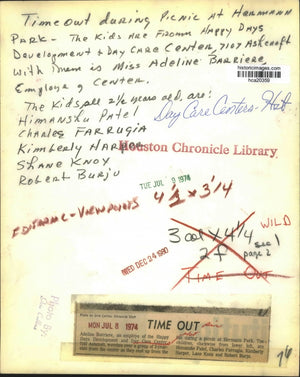 Time out during Picnic At Hermann
Park - The Kids are From Happy Days
Development & Day Care Center, 7107 Ashcroft
With them is Miss Adeline Barriere,
Employe of Center.
historicimages.com
hca20359
The Kids, all 2½ years old, are:
Himanshu Patel
Day Care Centers - Hst.
Charles Farrugia
Kimberly Harper
Houston Chronicle Library
Shane Knox
Robert Burju
TUE JUL 9 1974
Editorial - Viewpoints 4½ x 3¼
3 col x 4¼
WILD
2f
sec 1
page 2
WED DEC 24 1980
TIME OUT
Photo By:
MON JUL 8 1974
TIME OUT
Adeline Barriere, an employe of the Happy
Days Development and Day Care Center,